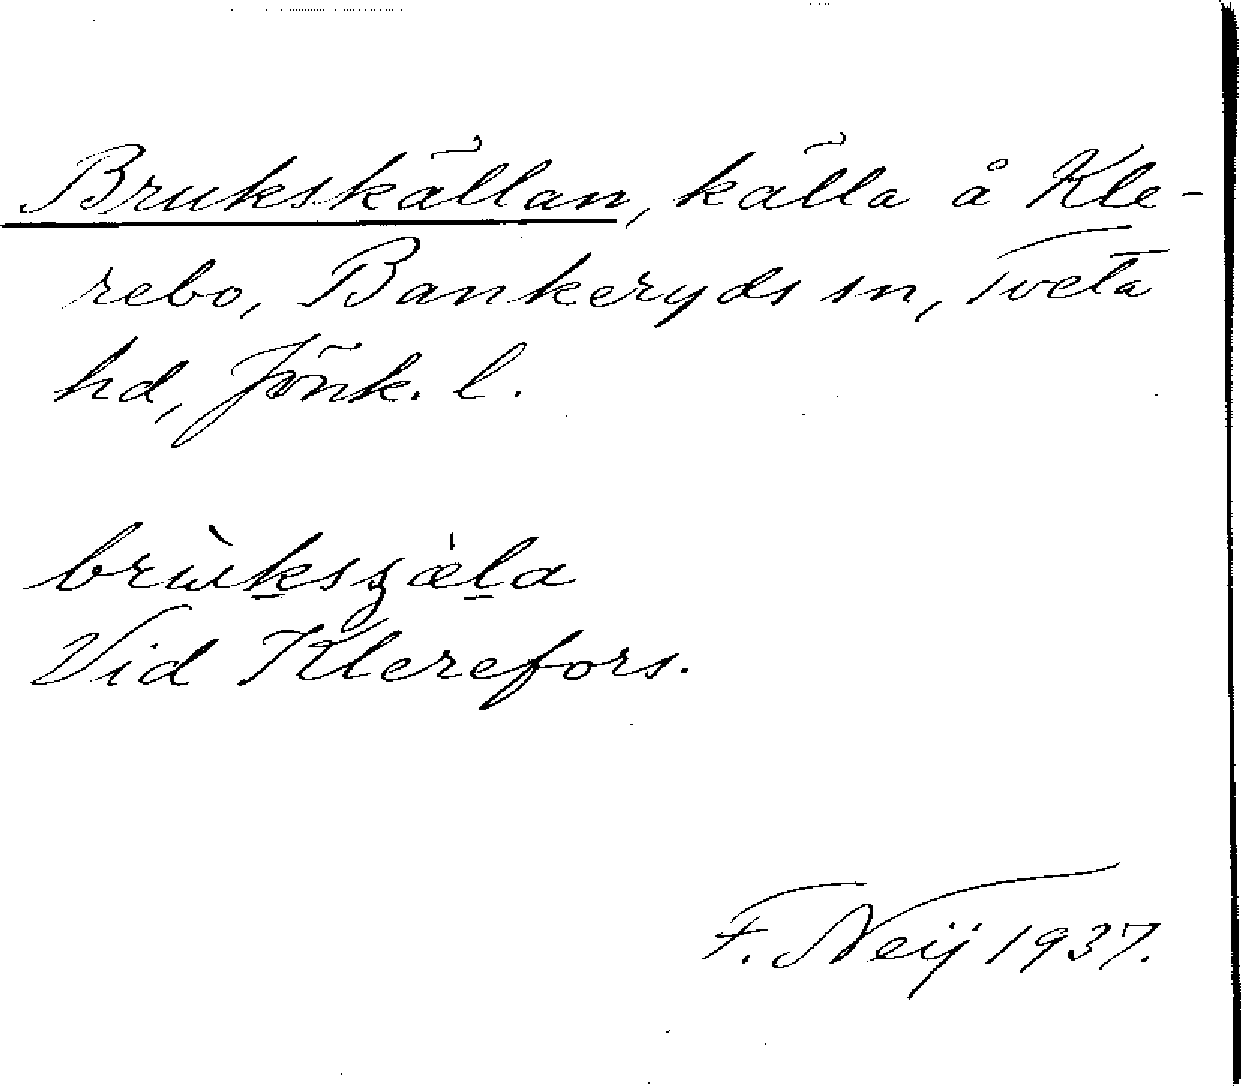 Brukskällan, källa å Kle-
rebo, Bankeryds sn, Tveta
hd, Jönk. l.
Vid Klerefors.
F. Neij 1937.